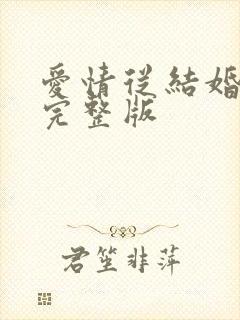 愛情從結婚
完整版
君笙非萍